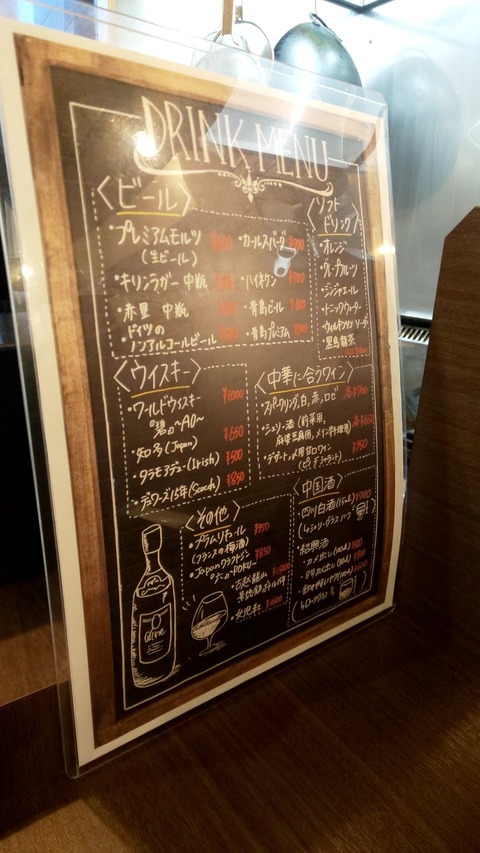 DRINK MENU
〈ビール〉
・プレミアムモルツ
(生ビール)
・キリンラガー 中瓶
・赤星 中瓶
・ドイツの
ノンアルコールビール
・カールスバーグ
・ハイネケン
・青島ビール ¥600
・青島プレミアム
〈ソフト
ドリンク〉
・オレンジ
・グレープフルーツ
・ジンジャエール
・トニックウォーター
・ウィルキンソン ソーダ
・黒烏龍茶
〈ウイスキー〉
・ワールドウイスキー ¥1000
"碧 〜AO〜
・知多 (Japan) ¥650
・タラモアデュー(Irish) ¥500
・デュワーズ15年(Scoch) ¥850
〈中華に合うワイン〉
・スパークリング, 白, 赤, ロゼ 各¥700
・シェリー酒 (前菜用, 各¥650
麻婆豆腐用, メイン料理用)
・デザート〆用甘口ワイン ¥950
〈その他〉
・プラムリキュール ¥950
(フランスの梅酒)
・Japanクラフトジン ¥850
"六 〜ROKU〜
・古越龍山
・女児紅
〈中国酒〉
・四川白酒 (15ml) ¥700
・紹興酒
・カメ出し
・8年カメ出し